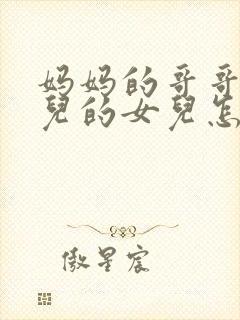 妈妈的哥哥
兒的女兒怎
傲星宸